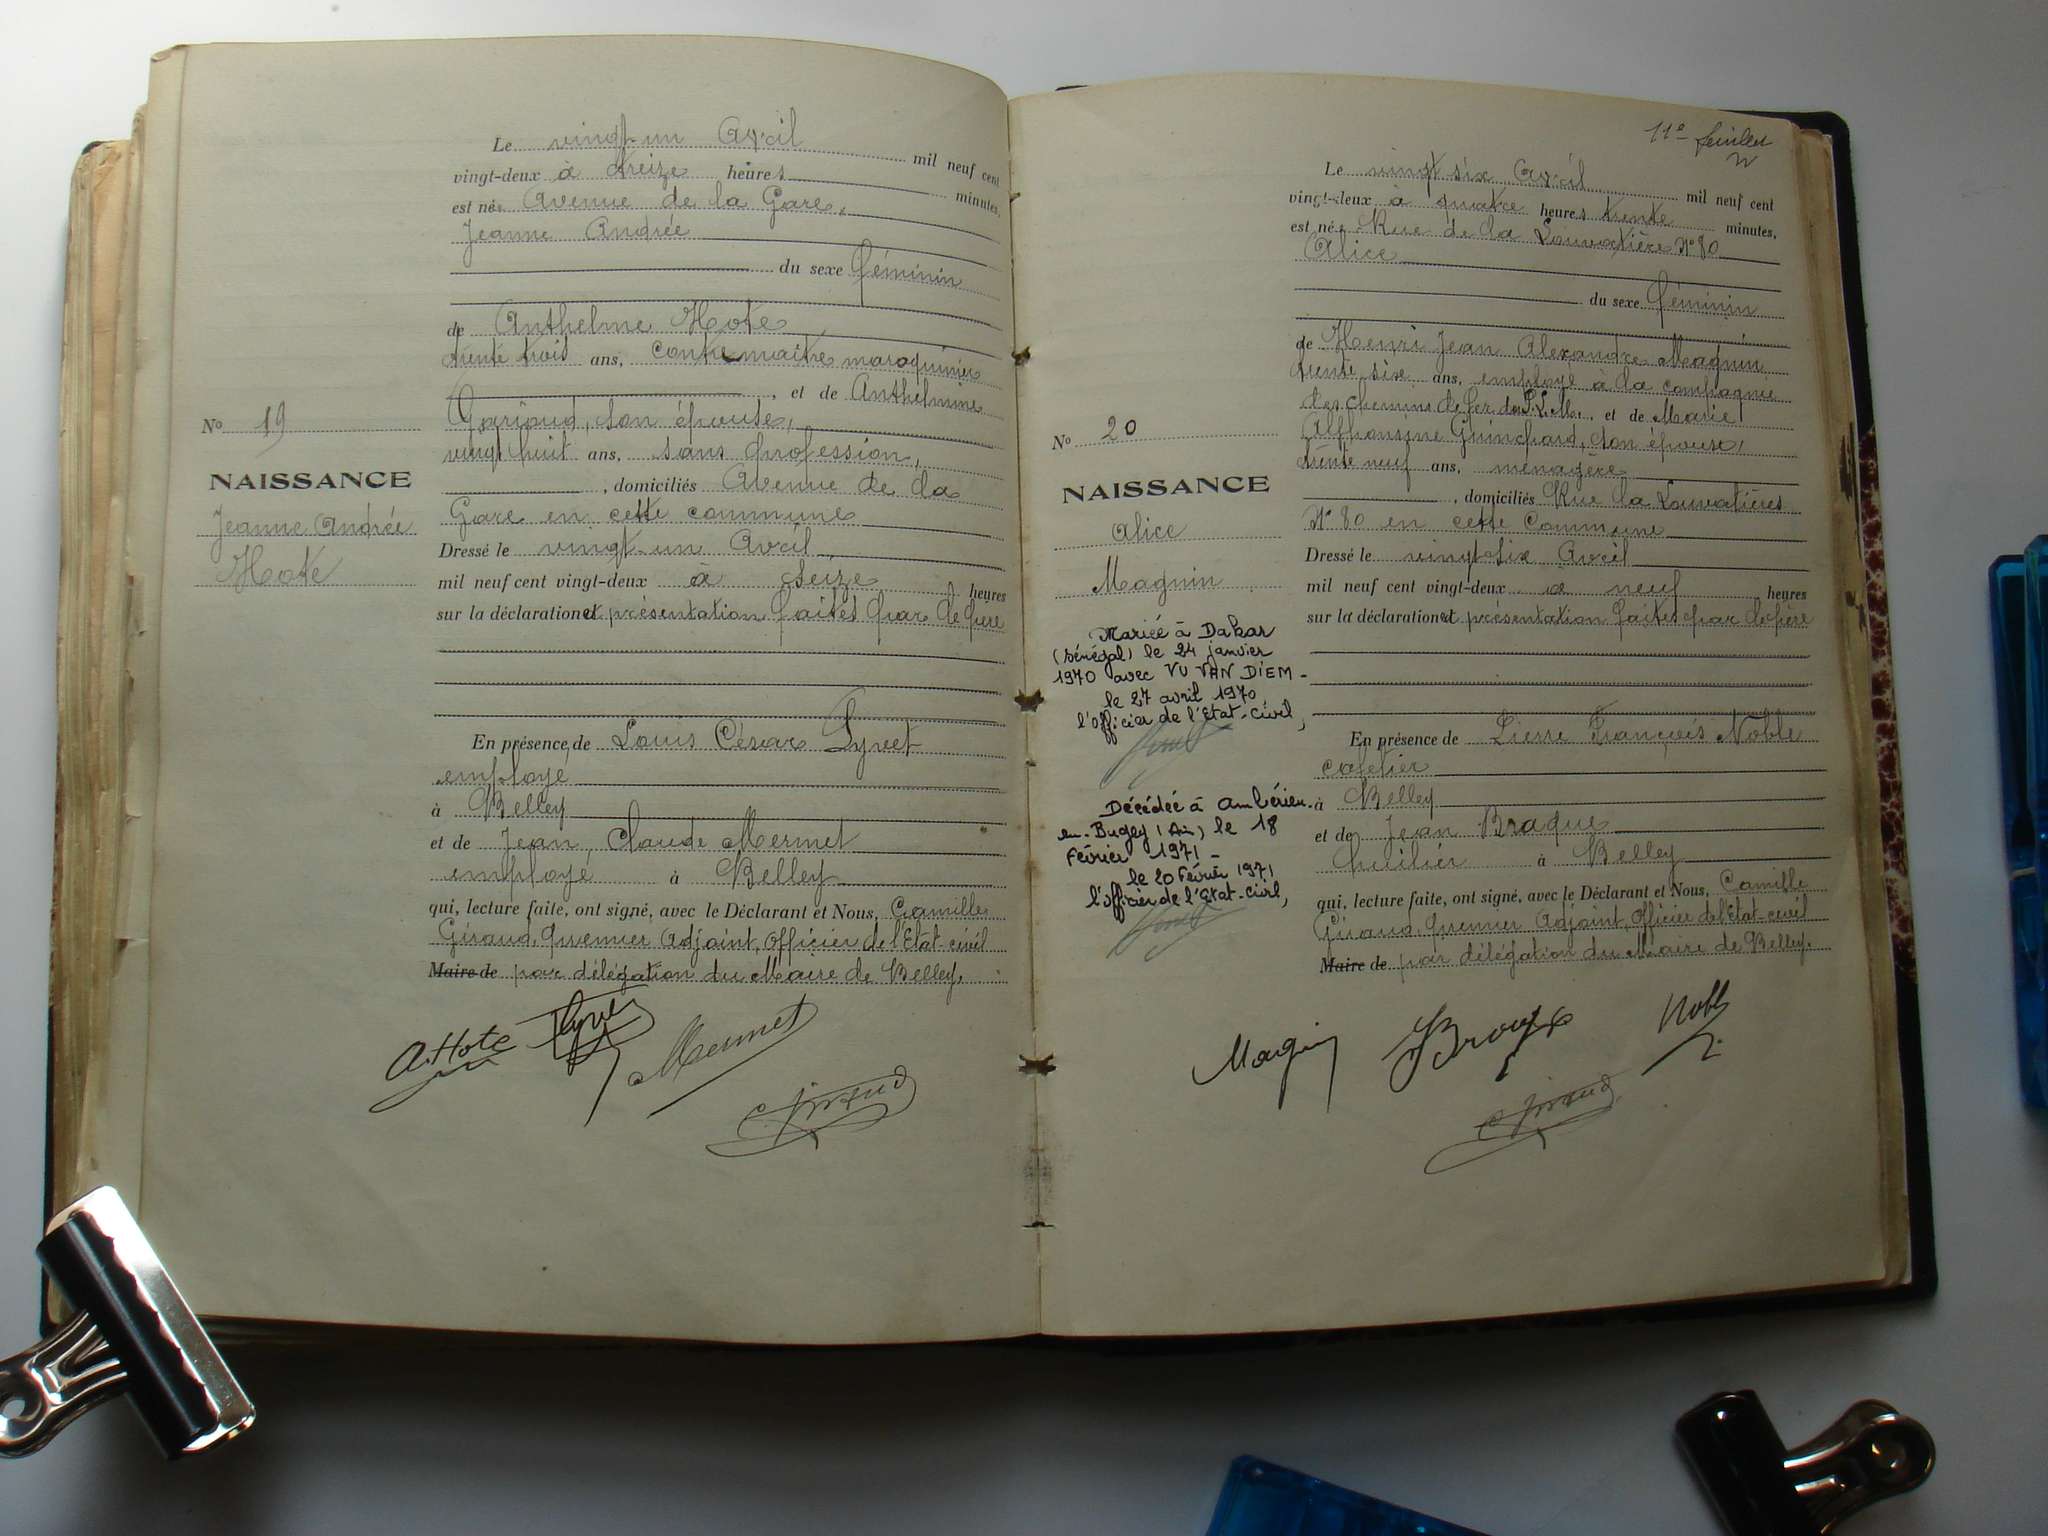 Le vingt-un Avril mil neuf cent
vingt-deux à treize heures minutes,
est née Avenue de la Gare,
Jeanne Andrée
du sexe féminin
de Anthelme Hote
trente trois ans, contremaitre maroquinier
, et de Anthelmine
son épouse,
vingt huit ans, sans profession,
, domiciliés Avenue de la
Gare en cette commune
Dressé le vingt-un Avril,
mil neuf cent vingt-deux à seize heures
sur la déclaration et présentation faites par le père
En présence de Louis César
employé
à Belley
et de Jean Claude Mermet
employé à Belley
qui, lecture faite, ont signé, avec le Déclarant et Nous, Camille
Giraud, premier Adjoint, officier de l'Etat-civil
Maire de par délégation du Maire de Belley.
No 19
NAISSANCE
Jeanne Andrée
Hote
A. Hote
Mermet
C. Giraud
11e feuillet
Le vingt six Avril mil neuf cent
vingt-deux à quatre heures trente minutes,
est née Rue de la Louvatière N° 80
Alice
du sexe féminin
de Henri Jean Alexandre Magnin
trente six ans, employé à la compagnie
des chemins de fer du P.L.M. et de Marie
Alphonsine Guinchard, son épouse,
trente neuf ans, ménagère
, domiciliés Rue la Louvatières
N° 80 en cette Commune
Dressé le vingt-six Avril
mil neuf cent vingt-deux à neuf heures
sur la déclaration et présentation faites par le père
En présence de Pierre François Noble
cafetier
à Belley
et de Jean Braque
huilier à Belley
qui, lecture faite, ont signé, avec le Déclarant et Nous, Camille
Giraud, premier Adjoint, Officier de l'Etat-civil
Maire de par délégation du Maire de Belley.
No 20
NAISSANCE
Alice
Magnin
Mariée à Dakar
(Sénégal) le 24 janvier
1970 avec VU VAN DIEM -
le 27 avril 1970
l'officier de l'Etat-civil,
Décédée à Ambérieu-
en-Bugey (Ain) le 18
Février 1971 -
le 20 Février 1971
l'officier de l'Etat-civil,
Magnin
Noble
C. Giraud